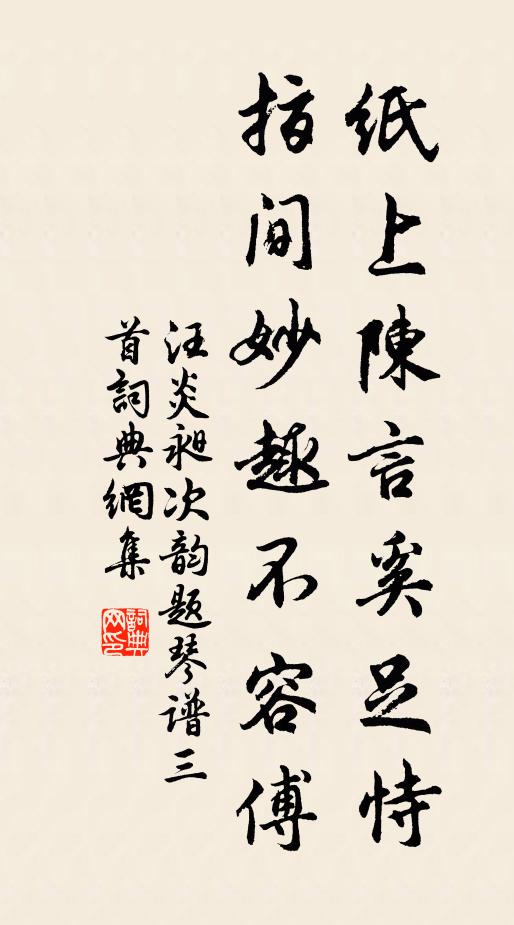 纸上陳言奚足恃
指间妙趣不容傅
汪炎昶次韵题琴谱三
首詞典網集
詞典
网印